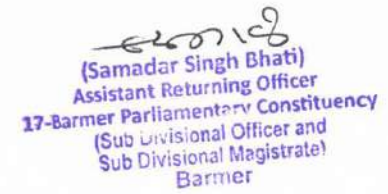 (Samadar Singh Bhati)
Assistant Returning Officer
17-Barmer Parliamentary Constituency
(Sub Divisional Officer and
Sub Divisional Magistrate)
Barmer